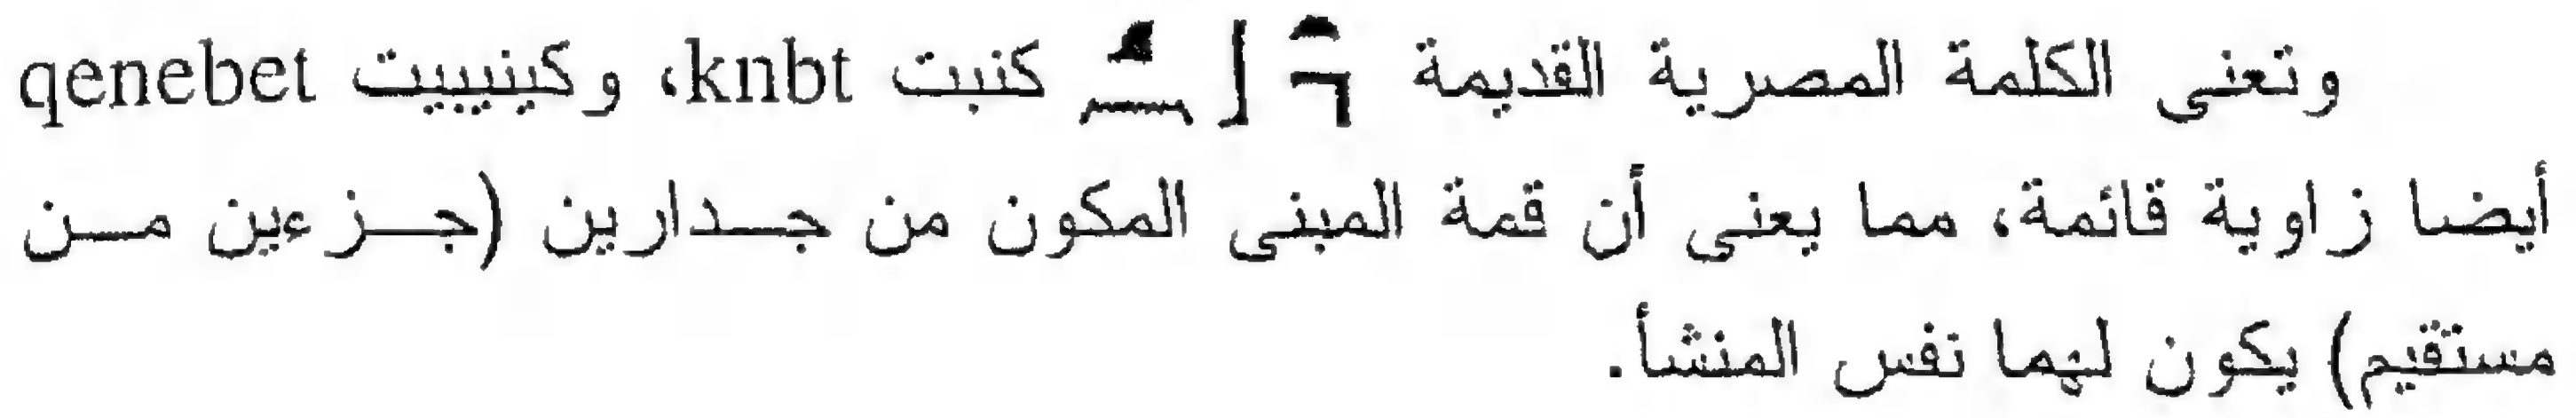 وتعنى الكلمة المصرية القديمة 𓈎𓈖𓃀𓏏𓘭 كنبت knbt، وكينيبيت qenebet
أيضا زاوية قائمة، مما يعنى أن قمة المبنى المكون من جدارين (جزءين من
مستقيم) يكون لهما نفس المنشأ.